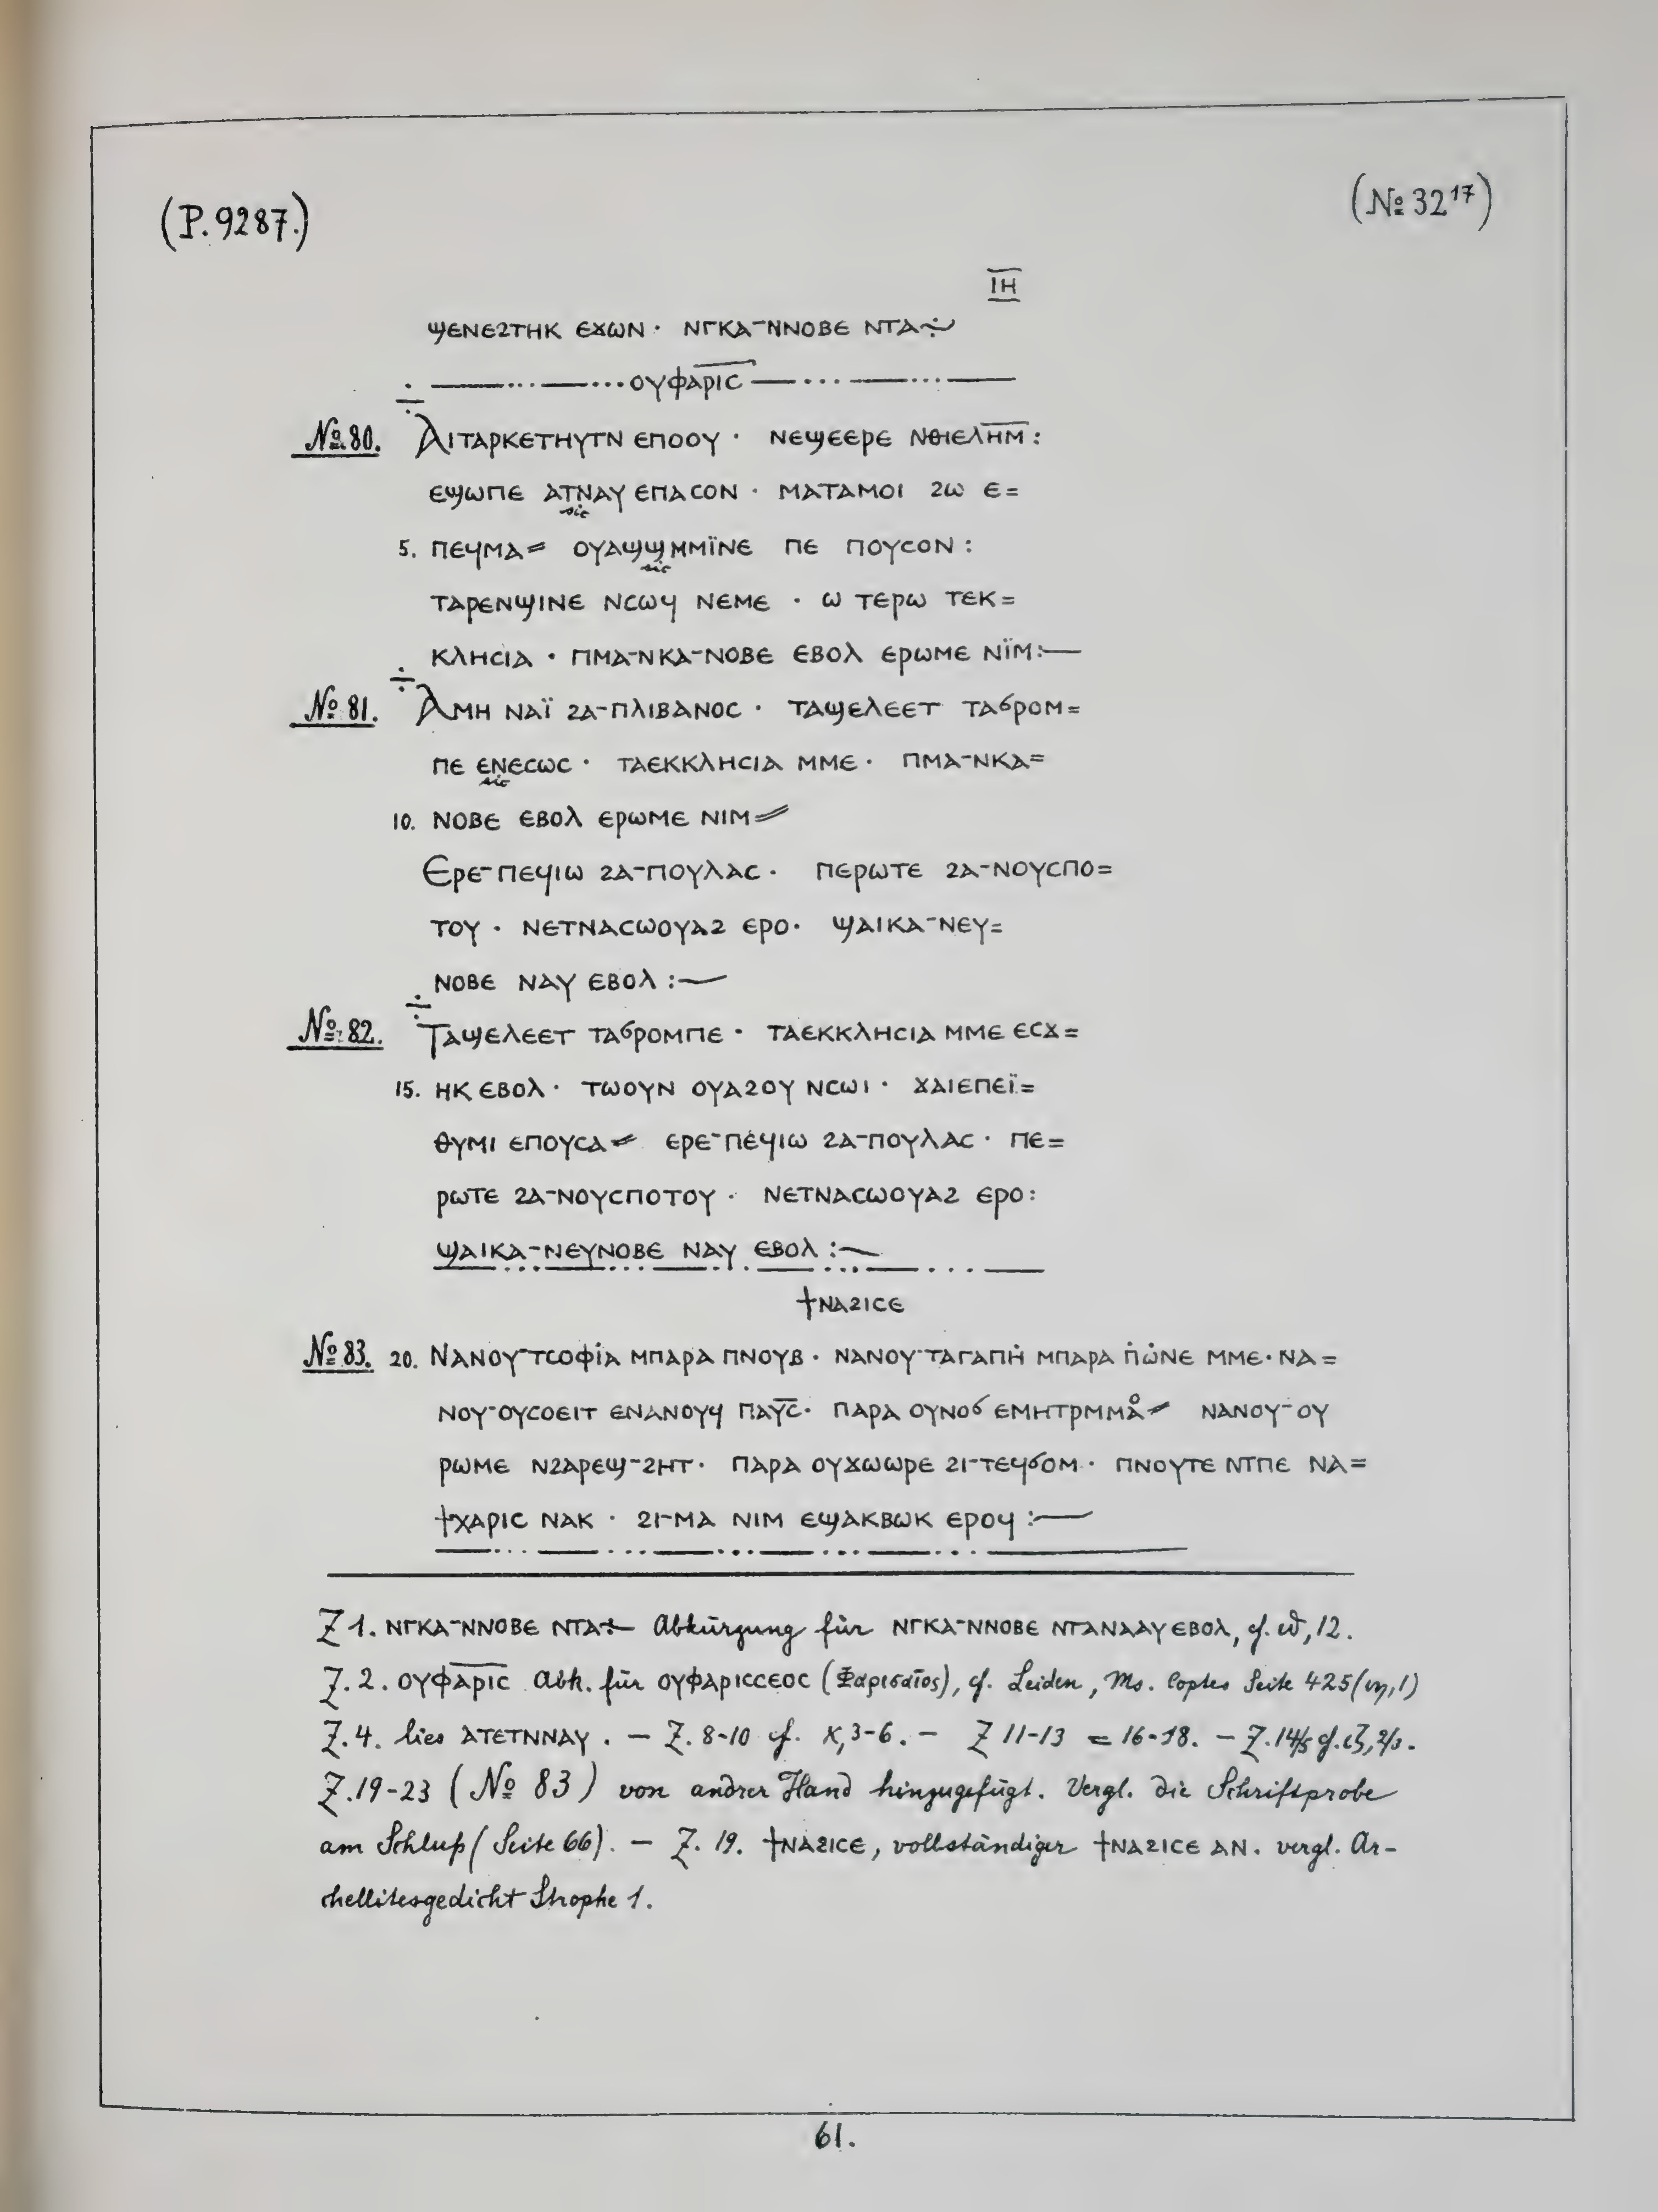 (P. 9287.)
(№ 32¹⁷)
ⲒⲎ
ϣⲉⲛⲉϩⲧⲏⲕ ⲉϫⲱⲛ · ⲛⲅⲕⲁ-ⲛⲛⲟⲃⲉ ⲛⲧⲁ÷
ⲟⲩⲫⲁ̅ⲣ̅ⲓ̅ⲥ̅
№ 80. Ⲁⲓⲧⲁⲣⲕⲉⲧⲏⲩⲧⲛ ⲉⲡⲟⲟⲩ · ⲛⲉϣⲉⲉⲣⲉ ⲛⲑⲓⲉⲗ̅ⲏ̅ⲙ̅ :
ⲉϣⲱⲡⲉ ⲁⲧⲛⲁⲩ ⲉⲡⲁⲥⲟⲛ · ⲙⲁⲧⲁⲙⲟⲓ ϩⲱ ⲉ=
sic
5. ⲡⲉϥⲙⲁ= ⲟⲩⲁϣϣⲙⲙⲓ̈ⲛⲉ ⲡⲉ ⲡⲟⲩⲥⲟⲛ :
sic
ⲧⲁⲣⲉⲛϣⲓⲛⲉ ⲛⲥⲱϥ ⲛⲉⲙⲉ · ⲱ ⲧⲉⲣⲱ ⲧⲉⲕ=
ⲕⲗⲏⲥⲓⲁ · ⲡⲙⲁ-ⲛⲕⲁ-ⲛⲟⲃⲉ ⲉⲃⲟⲗ ⲉⲣⲱⲙⲉ ⲛⲓ̈ⲙ :—
№ 81. Ⲁⲙⲏ ⲛⲁⲓ̈ ϩⲁ-ⲡⲗⲓⲃⲁⲛⲟⲥ · ⲧⲁϣⲉⲗⲉⲉⲧ ⲧⲁϭⲣⲟⲙ=
ⲡⲉ ⲉⲛⲉⲥⲱⲥ · ⲧⲁⲉⲕⲕⲗⲏⲥⲓⲁ ⲙⲙⲉ · ⲡⲙⲁ-ⲛⲕⲁ=
sic
10. ⲛⲟⲃⲉ ⲉⲃⲟⲗ ⲉⲣⲱⲙⲉ ⲛⲓⲙ=
Ⲉⲣⲉ-ⲡⲉϥⲓⲱ ϩⲁ-ⲡⲟⲩⲗⲁⲥ · ⲡⲉⲣⲱⲧⲉ ϩⲁ-ⲛⲟⲩⲥⲡⲟ=
ⲧⲟⲩ · ⲛⲉⲧⲛⲁⲥⲱⲟⲩⲁϩ ⲉⲣⲟ · ϣⲁⲓⲕⲁ-ⲛⲉⲩ=
ⲛⲟⲃⲉ ⲛⲁⲩ ⲉⲃⲟⲗ :—
№ 82. Ⲧⲁϣⲉⲗⲉⲉⲧ ⲧⲁϭⲣⲟⲙⲡⲉ · ⲧⲁⲉⲕⲕⲗⲏⲥⲓⲁ ⲙⲙⲉ ⲉⲥϫ=
15. ⲏⲕ ⲉⲃⲟⲗ · ⲧⲱⲟⲩⲛ ⲟⲩⲁϩⲟⲩ ⲛⲥⲱⲓ · ϫⲁⲓⲉⲡⲉⲓ̈=
ⲑⲩⲙⲓ ⲉⲡⲟⲩⲥⲁ= ⲉⲣⲉ-ⲡⲉϥⲓⲱ ϩⲁ-ⲡⲟⲩⲗⲁⲥ · ⲡⲉ=
ⲣⲱⲧⲉ ϩⲁ-ⲛⲟⲩⲥⲡⲟⲧⲟⲩ · ⲛⲉⲧⲛⲁⲥⲱⲟⲩⲁϩ ⲉⲣⲟ :
ϣⲁⲓⲕⲁ-ⲛⲉⲩⲛⲟⲃⲉ ⲛⲁⲩ ⲉⲃⲟⲗ :—
ϯⲛⲁϩⲓⲥⲉ
№ 83. 20. Ⲛⲁⲛⲟⲩ-ⲧⲥⲟⲫⲓⲁ ⲙⲡⲁⲣⲁ ⲡⲛⲟⲩⲃ · ⲛⲁⲛⲟⲩ-ⲧⲁⲅⲁⲡⲏ̇ ⲙⲡⲁⲣⲁ ⲡ̇ⲱ̇ⲛⲉ ⲙⲙⲉ · ⲛⲁ=
ⲛⲟⲩ-ⲟⲩⲥⲟⲉⲓⲧ ⲉⲛⲁⲛⲟⲩϥ ⲡⲁⲩ̅ⲥ̅ · ⲡⲁⲣⲁ ⲟⲩⲛⲟϭ ⲉⲙⲏⲧⲣⲙⲙⲁ̊= ⲛⲁⲛⲟⲩ-ⲟⲩ
ⲣⲱⲙⲉ ⲛϩⲁⲣⲉϣ-ϩⲏⲧ · ⲡⲁⲣⲁ ⲟⲩϫⲱⲱⲣⲉ ϩⲓ-ⲧⲉϥϭⲟⲙ · ⲡⲛⲟⲩⲧⲉ ⲛⲧⲡⲉ ⲛⲁ=
ϯⲭⲁⲣⲓⲥ ⲛⲁⲕ · ϩⲓ-ⲙⲁ ⲛⲓⲙ ⲉϣⲁⲕⲃⲱⲕ ⲉⲣⲟϥ :—
Z 1. ⲛⲅⲕⲁ-ⲛⲛⲟⲃⲉ ⲛⲧⲁ÷ Abkürzung für ⲛⲅⲕⲁ-ⲛⲛⲟⲃⲉ ⲛⲧⲁⲛⲁⲁⲩ ⲉⲃⲟⲗ, cf. ⲓⲑ, 12.
Z. 2. ⲟⲩⲫⲁ̅ⲣ̅ⲓ̅ⲥ̅ Abk. für ⲟⲩⲫⲁⲣⲓⲥⲥⲉⲟⲥ (Φαρισαῖος), cf. Leiden, Ms. Coptes Seite 425 (ⲓⲏ, 1)
Z. 4. lies ⲁⲧⲉⲧⲛⲛⲁⲩ . – Z. 8-10 cf. ⲕ, 3-6. – Z 11-13 = 16-18. – Z. 14/5 cf. ⲓⲍ, 2/3.
Z. 19-23 (№ 83) von andrer Hand hinzugefügt. Vergl. die Schriftprobe
am Schluß (Seite 66). – Z. 19. ϯⲛⲁϩⲓⲥⲉ, vollständiger ϯⲛⲁϩⲓⲥⲉ ⲁⲛ. vergl. Ar-
chellitesgedicht Strophe 1.
61.